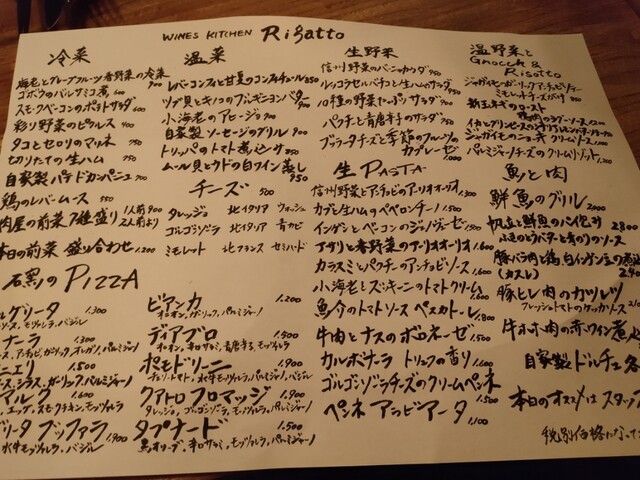 WINES KITCHEN Rigatto
冷菜
海老とグレープフルーツ 春野菜の冷菜 900
ゴボウのバルサミコ煮 600
スモークベーコンのポテトサラダ 600
彩り野菜のピクルス 400
タコとセロリのマリネ 750
切りたての生ハム 750
自家製パテドカンパニュ 700
鶏のレバームース 550
肉屋の前菜7種盛り 1人前 900
2人前より
本日の前菜 盛り合わせ 1.200
温菜
レバーコンフィと甘夏のコンフィチュール 850
ツブ貝とキノコのブルギニヨンバター 900
小海老のアヒージョ 900
自家製 ソーセージのグリル 900
トリッパのトマト煮込 ンサ 750
ムール貝とウドの白ワイン蒸し 950
チーズ 500
タレッジョ 北イタリア ウォッシュ
ゴルゴンゾラ 北イタリア 青カビ
ミモレット 北フランス セミハード
生野菜
信州野菜のバーニャカウダ 950
ルッコラセルバチコと生ハムサラダ 950
10種の野菜せいろ サラダ 900
パクチと青唐辛子のサラダ 900
ブッラータチーズと季節のフルーツの
カプレーゼ 1.000
生 PASTA
信州野菜とアンチョビのアーリオオーリオ 1.300
カブと生ハムのペペロンチーノ 1.500
インゲンとベーコンのジェノヴェーゼ 1.500
アサリと春野菜のアーリオオーリオ 1.600
カラスミとパクチーのアンチョビソース 1.600
小海老とズッキーニのトマトクリーム 1.600
魚介のトマトソース ペスカトーレ 1.800
牛肉とナスのボロネーゼ 1.500
カルボナーラ トリュフの香り 1.600
ゴルゴンゾラチーズのクリームペンネ 1.500
ペンネ アラビアータ 1.100
温野菜と
GNOCCA &
RISOTTO
ジャガイモのガーリックアンチョビソテー
ミモレットチーズがけ 850
新玉ネギのロースト
イカとグリンピースの
ジャガイモのニョッキ クリームソース
パルミジャーノチーズのクリームリゾット
魚と肉
鮮魚のグリル 2.000
帆立と鮮魚のパイ包み 2.800
ふきのとうバターと青のりのソース
豚バラ肉と鶏、白インゲン豆の煮込
(カスレ) 2.800
豚ヒレ肉のカツレツ
フレッシュトマトのケッカソース
牛ホホ肉の赤ワイン煮
自家製 ドルチェ 各
本日のオススメは スタッフ
税別価格になって
石窯の PIZZA
ルゲリータ 1.300
ソース、モッツァレラ、バジル
ナーラ 1.300
ス、アンチョビ、ガーリック、オレガノ、パルミジャーノ
ニエリ 1.500
ース、シラス、ガーリック、パルミジャーノ
アルグ 1.600
、エッグ、スモークチキン、モッツァレラ
リータ ブッファラ
、水牛モッツァレラ、バジル 1.900
ビアンカ 1.200
オニオン、ガーリック、パルミジャーノ
ディアブロ 1.500
オニオン、辛口サラミ、青唐辛子、モッツァレラ
ポモドリーニ 1.900
チェリートマト、水牛モッツァレラ、パルミジャーノ、バジル
クアトロ フロマッジ 1.900
タレッジョ、ゴルゴンゾラ、モッツァレラ、パルミジャーノ
タプナード 1.500
黒オリーブ、辛口サラミ、モッツァレラ、パルミジャーノ